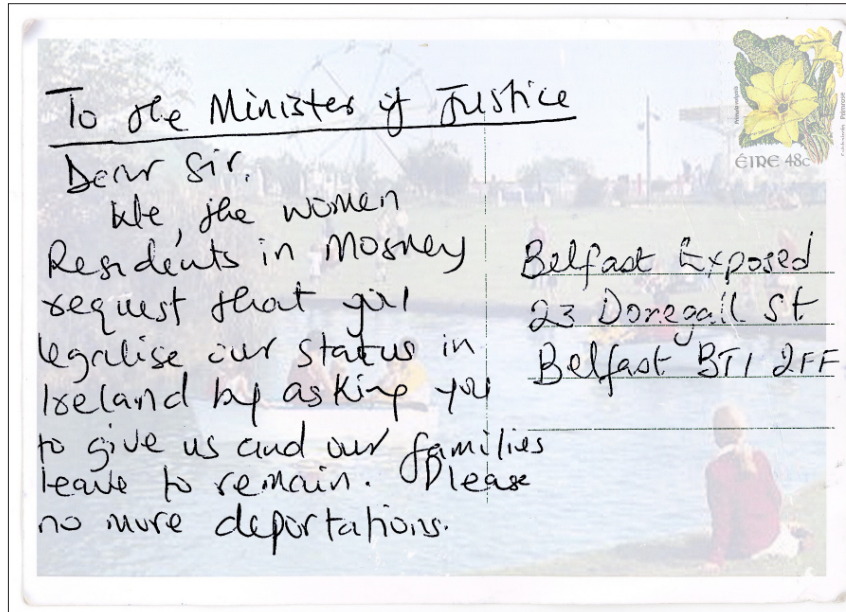 To the Minister of Justice
Dear Sir.
We, the women
Residents in Mosney
request that you
legalise our status in
Ireland by asking you
to give us and our families
leave to remain. Please
no more deportations.
Belfast Exposed
23 Donegall St
Belfast BT1 2FF
ÉIRE 48c
Primula vulgaris
Primrose